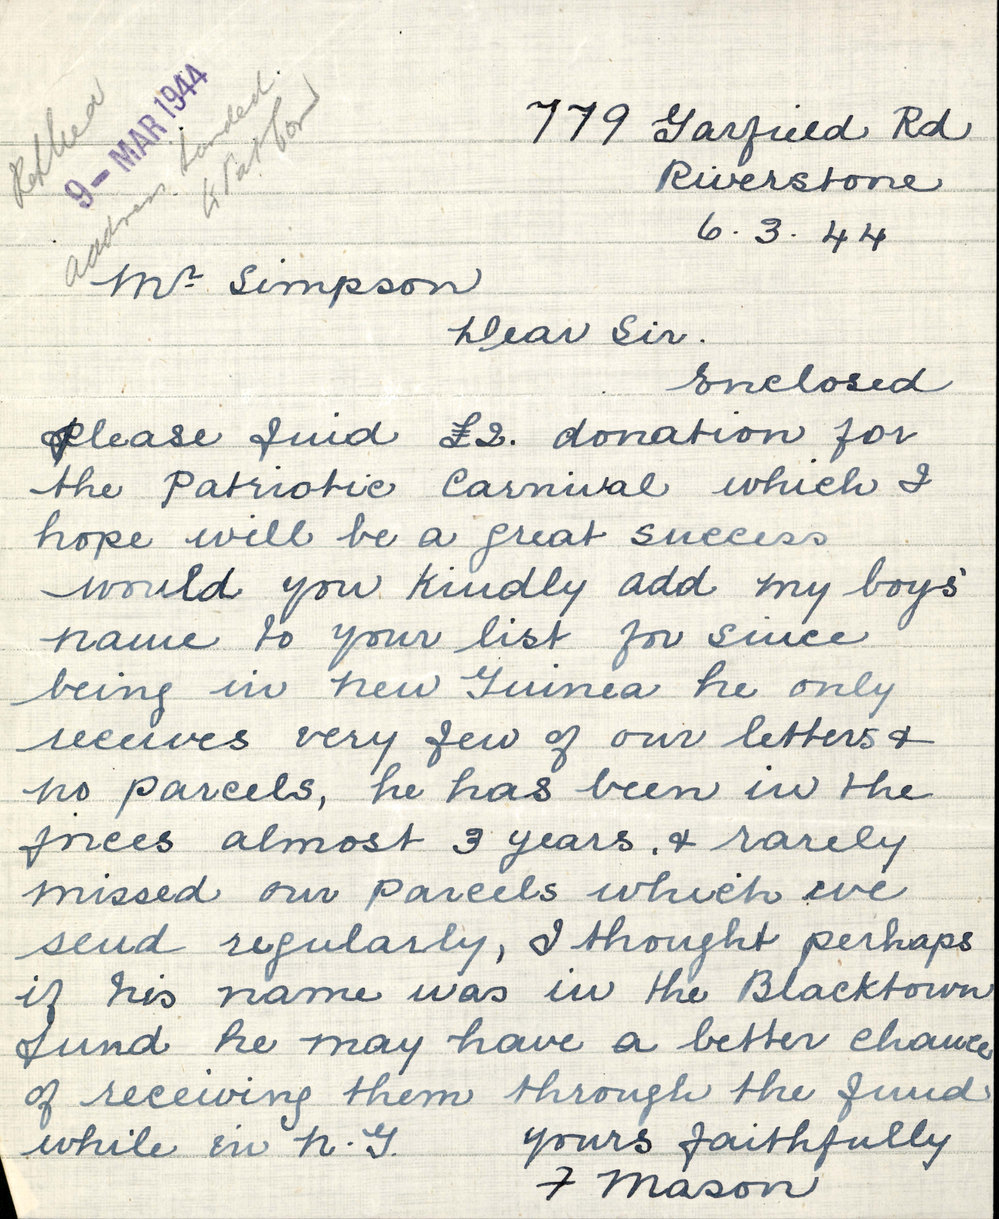 Replied
9 - MAR 1944
address handed
to Pat
779 Garfield Rd
Riverstone
6. 3. 44
Mr Simpson
Dear Sir.
Enclosed
please find £2. donation for
the Patriotic Carnival which I
hope will be a great success
would you kindly add my boys'
name to your list for since
being in New Guinea he only
receives very few of our letters &
no parcels, he has been in the
forces almost 3 years, & rarely
missed our parcels which we
send regularly, I thought perhaps
if his name was in the Blacktown
fund he may have a better chance
of receiving them through the fund
while in N.G.    yours faithfully
F Mason